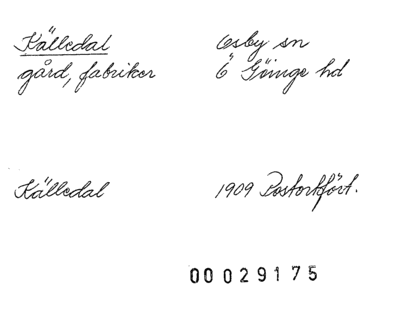 Källedal Osby sn
gård, fabriker Ö Göinge hd
Källedal 1909 Postortfört.
00029175